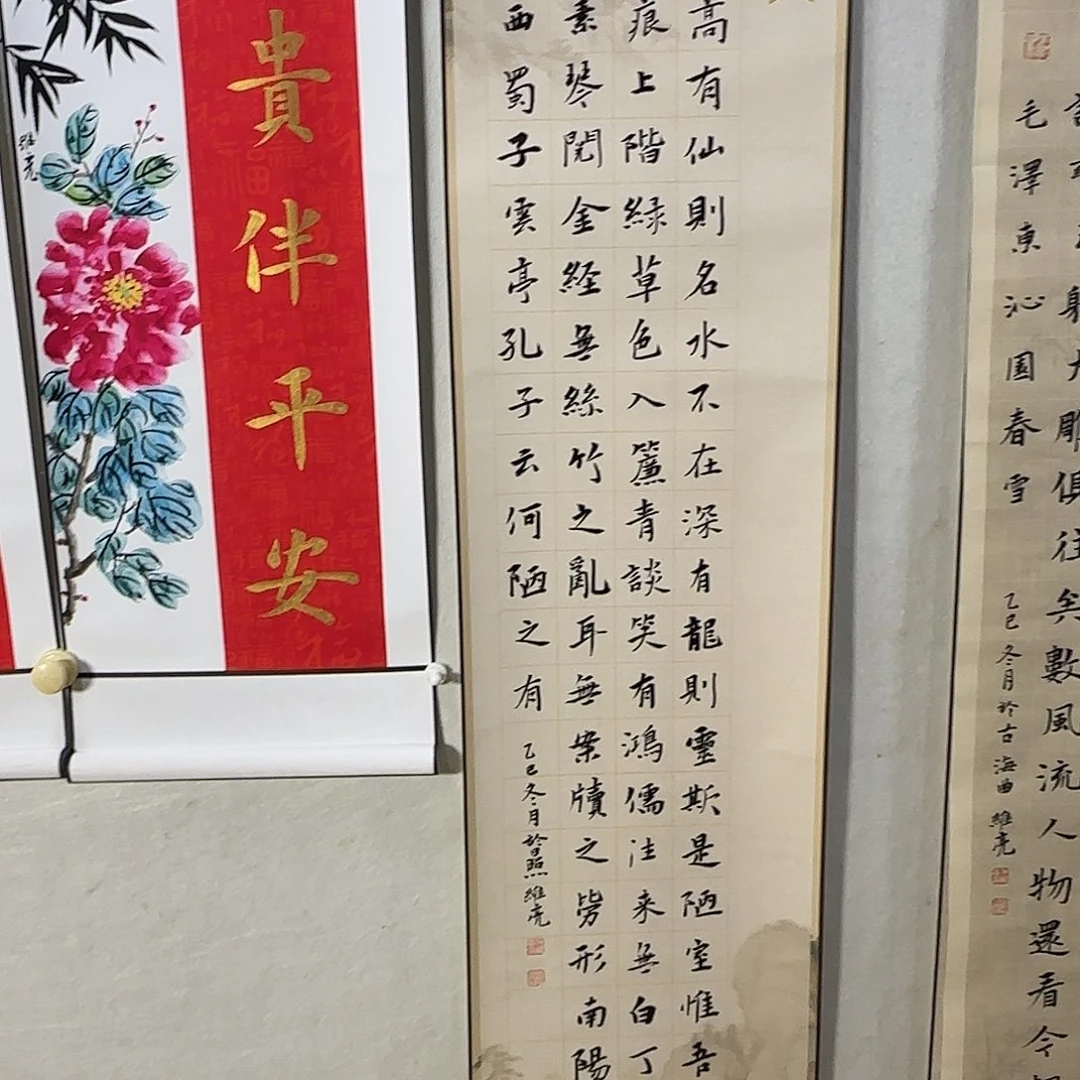 射大雕俱往矣數風流人物還看今
毛澤東沁園春雪
乙巳冬月於古海曲維亮
高有仙則名水不在深有龍則靈斯是陋室惟吾
痕上階緑草色入簾青談笑有鴻儒往来無白丁
素琴閱金経無絲竹之亂耳無案牘之勞形南陽
西蜀子雲亭孔子云何陋之有
乙巳冬月於日照維亮
貴伴平安
維亮